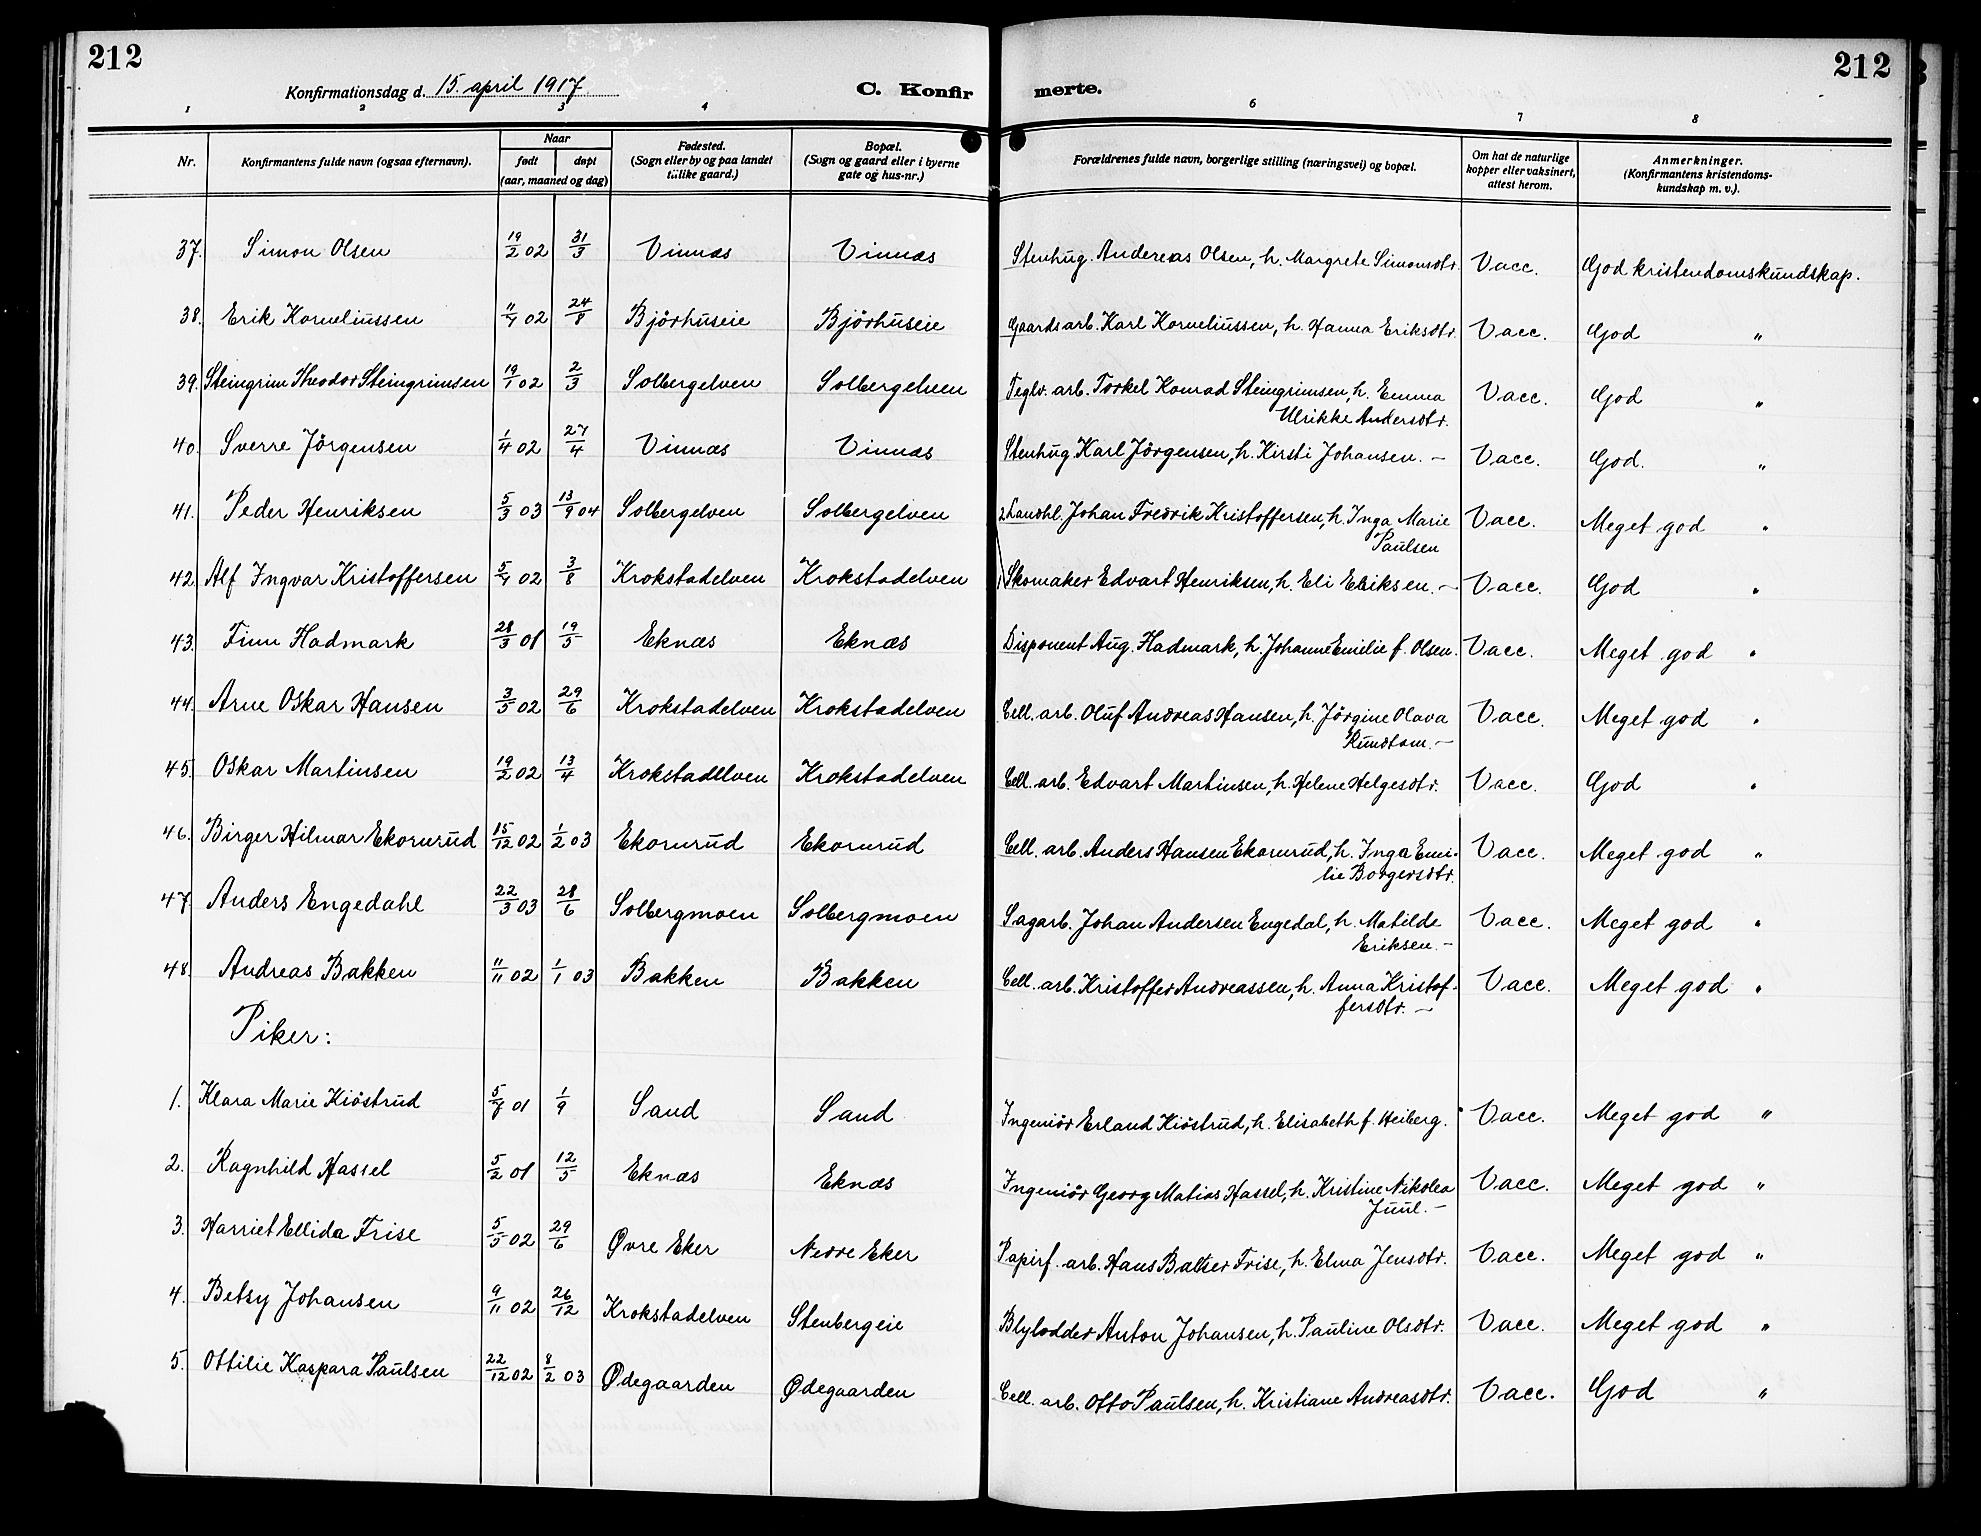 212
212
Konfirmationsdag d. 15. april 1917
C. Konfir merte.
1 2 3 4 6 7 8
Nr. Konfirmantens fulde navn (ogsaa efternavn). Naar født døpt (aar, maaned og dag) Fødested. (Sogn eller by og paa landet tillike gaard.) Bopæl. (Sogn og gaard eller i byerne gate og hus-nr.) Forældrenes fulde navn, borgerlige stilling (næringsvei) og bopæl. Om hat de naturlige kopper eller vaksinert, attest herom. Anmerkninger. (Konfirmantens kristendoms-kundskap m. v.).
37. Simon Olsen 19/2 02 31/3 Vinnæs Vinnæs Stenhug. Andereas Olsen, h. Margrete Simonsdtr. Vacc. God kristendomskundskap.
38. Erik Korneliussen 11/7 02 24/8 Bjørhuseie Bjørhuseie Gaardsarb. Karl Korneliussen, h. Hanna Eriksdtr. Vacc. God "
39. Steingrim Theodor Steingrimsen 19/1 02 2/3 Solbergelven Solbergelven Teglv. arb. Torkel Konrad Steingrimsen, h. Emma
Ulrikke Andersdtr. Vacc. God "
40. Sverre Jörgensen 1/4 02 27/4 Vinnæs Vinnæs Stenhug Karl Jörgensen, h. Kirsti Johansen. — Vacc. God. "
41. Peder Henriksen 5/3 03 13/9 04 Solbergelven Solbergelven 2 Landhl. Johan Fredrik Kristoffersen, h. Inga Marie
Paulsen Vacc. Meget god "
42. Alf Ingvar Kristoffersen 5/7 02 3/8 Krokstadelven Krokstadelven 1 Skomaker Edvart Henriksen, h. Eli Eriksen. — Vacc. God "
43. Finn Hadmark 28/3 01 19/5 Eknæs Eknæs Disponent Aug. Hadmark, h. Johanne Emilie f. Olsen. Vacc. Meget god "
44. Arne Oskar Hansen 3/5 02 29/6 Krokstadelven Krokstadelven Cell. arb. Oluf Andreas Hansen, h. Jörgine Olava
— Vacc. Meget god "
45. Oskar Martinsen 19/2 02 13/4 Krokstadelven Krokstadelven Cell. arb. Edvart Martinsen, h. Helene Helgesdtr. Vacc. God "
46. Birger Hilmar Ekornrud 15/12 02 1/2 03 Ekornrud Ekornrud Cell. arb. Anders Hansen Ekornrud, h. Inga Emi-
lie Borgersdtr. Vacc. Meget god "
47. Anders Engedahl 22/3 03 28/6 Solbergmoen Solbergmoen Sagarb. Johan Andersen Engedal, h. Matilde
Eriksen. — Vacc. Meget god "
48. Andreas Bakken 11/11 02 1/1 03 Bakken Bakken Cell. arb. Kristoffer Andreassen, h. Anna Kristof-
fersdtr. — Vacc. Meget god "
Piker:
1. Klara Marie Kiöstrud 01 1/9 Sand Sand Ingeniör Erland Kiöstrud, h. Elisabeth f. Heiberg. Vacc. Meget god "
2. Ragnhild Hassel 5/2 01 12/5 Eknæs Eknæs Ingeniör Georg Matias Hassel, h. Kristine Nikolea
Juul. — Vacc. Meget god "
3. Harriet Ellida Frise 5/5 02 29/6 Øvre Eker Nedre Eker Papirf. arb. Hans Baltser Frise, h. Elma Jensdtr. Vacc. Meget god "
4. Betsy Johansen 9/11 02 26/12 Krokstadelven Stenbergeie Blylodder Anton Johansen, h. Pauline Olsdtr. Vacc. Meget god "
5. Ottilie Kaspara Paulsen 22/12 02 8/2 03 Ødegaarden Ødegaarden Cell. arb. Otto Paulsen, h. Kristiane Andreasdtr. Vacc. God "